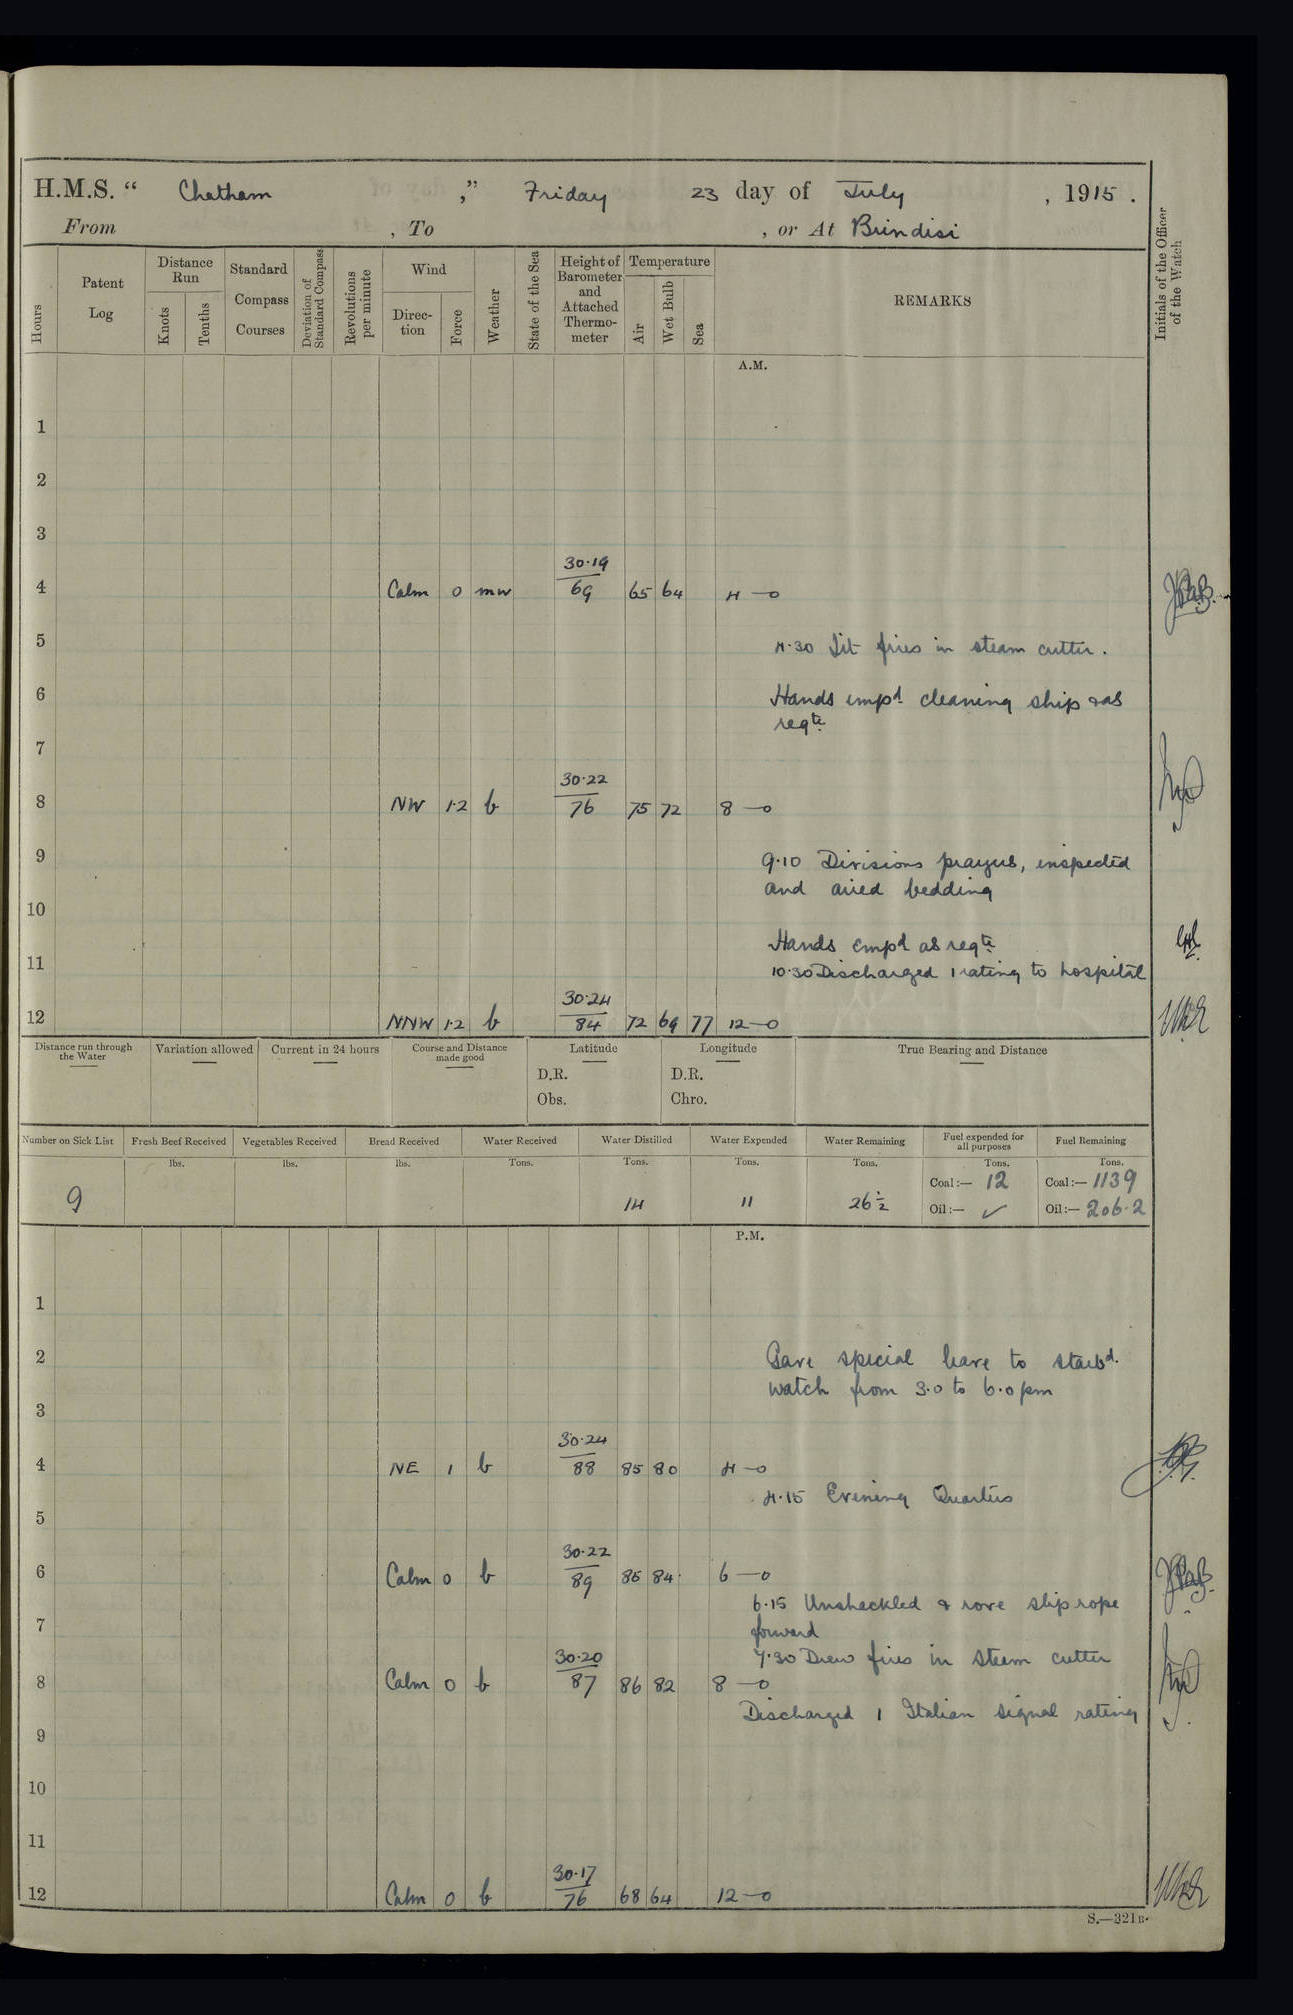 H.M.S. “ Chatham ,” Friday 23 day of July , 1915 .
From , To , or At Brindisi
Hours
Patent Log
Distance Run
Knots
Tenths
Standard Compass Courses
Deviation of Standard Compass
Revolutions per minute
Wind
Direc-tion
Force
Weather
State of the Sea
Height of Barometer and Attached Thermo-meter
Temperature
Air
Wet Bulb
Sea
REMARKS
Initials of the Officer of the Watch
A.M.
1
2
3
30·19
4 Calm 0 mw 69 65 64 4 —0
5 4·30 Lit fires in steam cutter.
6 Hands empd cleaning ship & as
reqte
7
30·22
8 NW 1·2 b 76 75 72 8 —0
9 9·10 Divisions prayers, inspected
and aired bedding
10
Hands empd as reqte
11 10·30 Discharged 1 rating to hospital
30·24
12 NNW 1·2 b 84 72 69 77 12—0
Distance run through the Water
Variation allowed
Current in 24 hours
Course and Distance made good
Latitude
D.R.
Obs.
Longitude
D.R.
Chro.
True Bearing and Distance
Number on Sick List
Fresh Beef Received
Vegetables Received
Bread Received
Water Received
Water Distilled
Water Expended
Water Remaining
Fuel expended for all purposes
Fuel Remaining
lbs. lbs. lbs. Tons. Tons. Tons. Tons. Tons. Tons.
9 14 11 26 ½
Coal :— 12 Coal :— 1139
Oil :— ✓ Oil :— 206·2
P.M.
1
2 Gave special leave to starbd.
watch from 3·0 to 6·0 pm
3
30·24
4 NE 1 b 88 85 80 4 —0
4·15 Evening Quarters
5
30·22
6 Calm 0 b 89 85 84 6 —0
6·15 Unshackled & rove slip rope
7 forward
30·20 7·30 Drew fires in steam cutter
8 Calm 0 b 87 86 82 8 —0
Discharged 1 Italian signal rating
9
10
11
30·17
12 Calm 0 b 76 68 64 12—0
S.—321B.